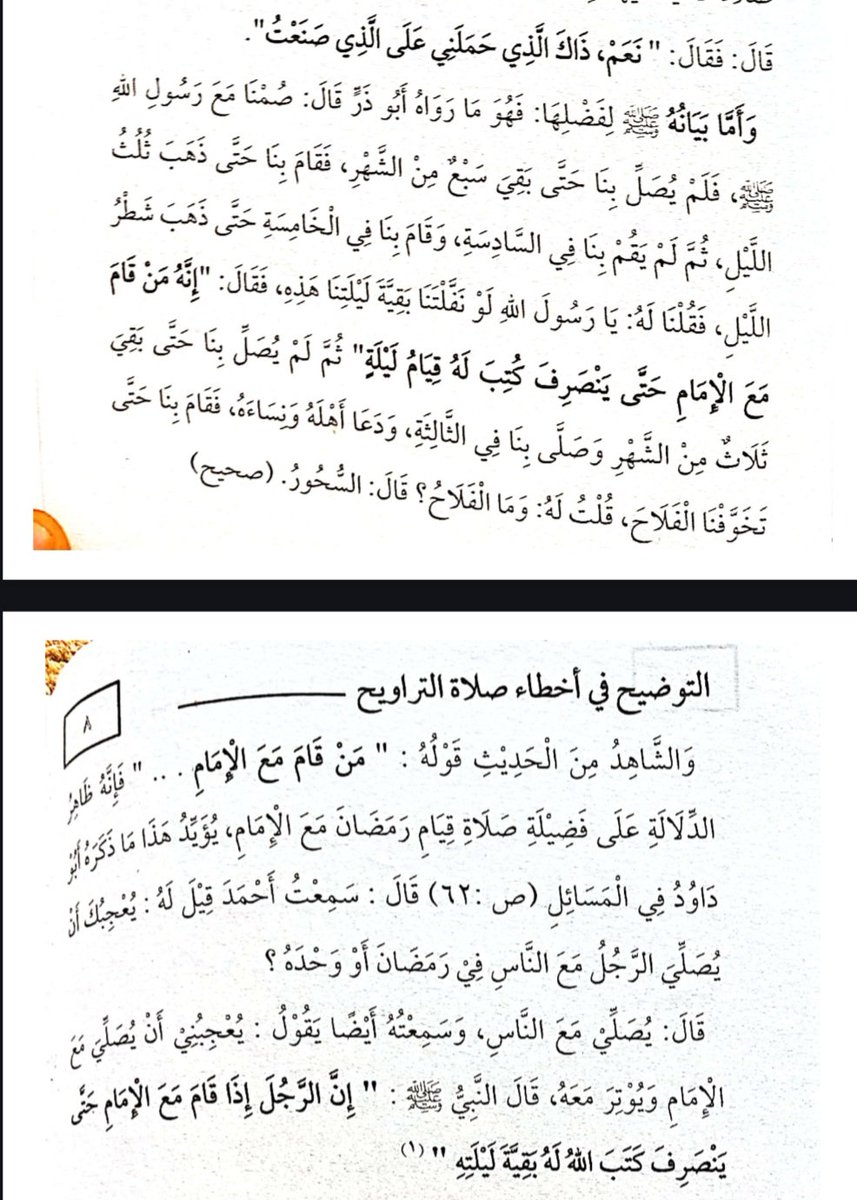 قَالَ: فَقَالَ: " نَعَمْ، ذَاكَ الَّذِي حَمَلَنِي عَلَى الَّذِي صَنَعْتُ".
وَأَمَّا بَيَانُهُ ﷺ لِفَضْلِهَا: فَهُوَ مَا رَوَاهُ أَبُو ذَرٍّ قَالَ: صُمْنَا مَعَ رَسُولِ اللهِ
ﷺ، فَلَمْ يُصَلِّ بِنَا حَتَّى بَقِيَ سَبْعٌ مِنْ الشَّهْرِ، فَقَامَ بِنَا حَتَّى ذَهَبَ ثُلُثُ
اللَّيْلِ، ثُمَّ لَمْ يَقُمْ بِنَا فِي السَّادِسَةِ، وَقَامَ بِنَا فِي الْخَامِسَةِ حَتَّى ذَهَبَ شَطْرُ
اللَّيْلِ، فَقُلْنَا لَهُ: يَا رَسُولَ اللهِ لَوْ نَفَّلْتَنَا بَقِيَّةَ لَيْلَتِنَا هَذِهِ، فَقَالَ: "إِنَّهُ مَنْ قَامَ
مَعَ الْإِمَامِ حَتَّى يَنْصَرِفَ كُتِبَ لَهُ قِيَامُ لَيْلَةٍ" ثُمَّ لَمْ يُصَلِّ بِنَا حَتَّى بَقِيَ
ثَلَاثٌ مِنْ الشَّهْرِ وَصَلَّى بِنَا فِي الثَّالِثَةِ، وَدَعَا أَهْلَهُ وَنِسَاءَهُ، فَقَامَ بِنَا حَتَّى
تَخَوَّفْنَا الْفَلَاحَ، قُلْتُ لَهُ: وَمَا الْفَلَاحُ؟ قَالَ: السُّحُورُ. (صحيح)
التوضيح في أخطاء صلاة التراويح
٨
وَالشَّاهِدُ مِنَ الْحَدِيْثِ قَوْلُهُ : " مَنْ قَامَ مَعَ الْإِمَامِ . . . " فَإِنَّهُ ظَاهِرُ
الدِّلَالَةِ عَلَى فَضِيْلَةِ صَلَاةِ قِيَامِ رَمَضَانَ مَعَ الْإِمَامِ، يُؤَيِّدُ هَذَا مَا ذَكَرَهُ أَبُوْ
دَاوُدُ فِي الْمَسَائِلِ (ص :٦٢) قَالَ : سَمِعْتُ أَحْمَدَ قِيْلَ لَهُ : يُعْجِبُكَ أَنْ
يُصَلِّيَ الرَّجُلُ مَعَ النَّاسِ فِيْ رَمَضَانَ أَوْ وَحْدَهُ ؟
قَالَ: يُصَلِّيْ مَعَ النَّاسِ، وَسَمِعْتُهُ أَيْضًا يَقُوْلُ : يُعْجِبُنِيْ أَنْ يُصَلِّيَ مَعَ
الْإِمَامِ وَيُوْتِرَ مَعَهُ، قَالَ النَّبِيُّ ﷺ : " إِنَّ الرَّجُلَ إِذَا قَامَ مَعَ الْإِمَامِ حَتَّى
يَنْصَرِفَ كَتَبَ اللهُ لَهُ بَقِيَّةَ لَيْلَتِهِ " (١)